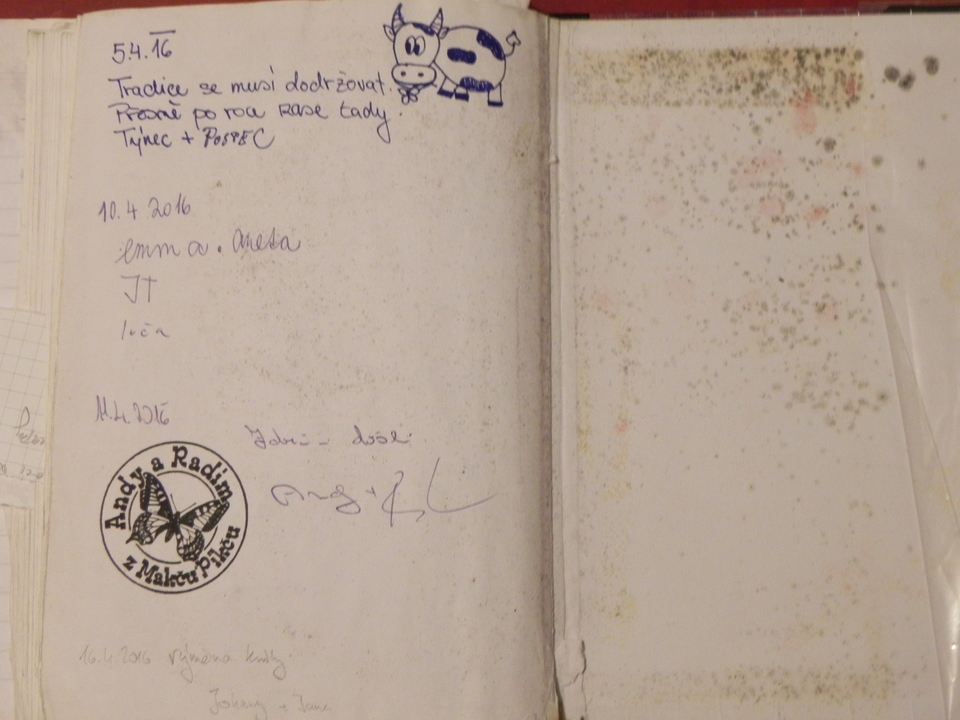 5.4.16
Tradice se musí dodržovat.
Přesně po roce zase tady.
Týnec + POSPEC
10.4 2016
emma. Aneta
JT
luča
11.4.2016
došli
Andy a Radim
z Makču Pikču
16.4.2016 výměna knihy
Johny + Jane